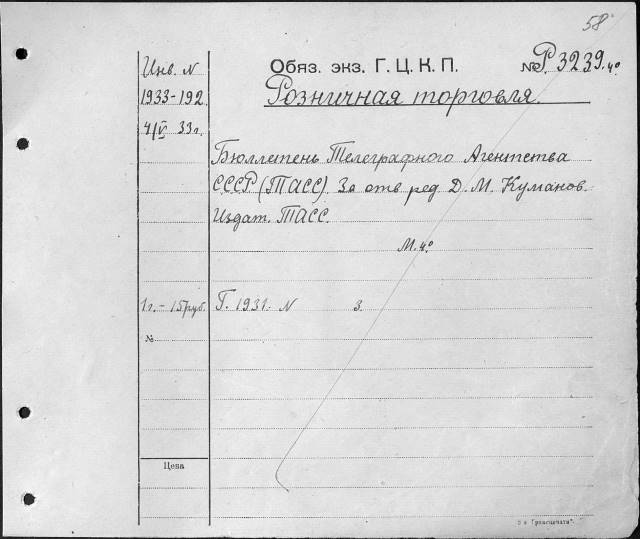 58
Инв. N
1933-192.
4/V 33 г.
Обяз. экз. Г. Ц. К. П.
№ Р 3239. 4°
Розничная торговля.
Бюллетень Телеграфного Агентства
СССР (ТАСС). За отв. ред. Д. М. Куманов.
Издат. ТАСС.
М. 4°
1 г. - 15 руб.
Г. 1931. N 3.
№
Цена